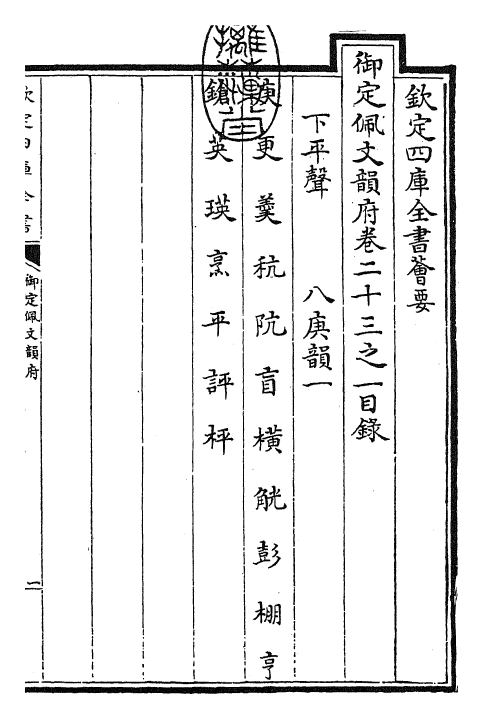 欽定四庫全書薈要
御定佩文韻府卷二十三之一目錄
下平聲 八庚韻一
庚更羮秔阬盲橫觥彭棚亨
鎗英瑛烹平評枰
欽定四庫全書
御定佩文韻府
一